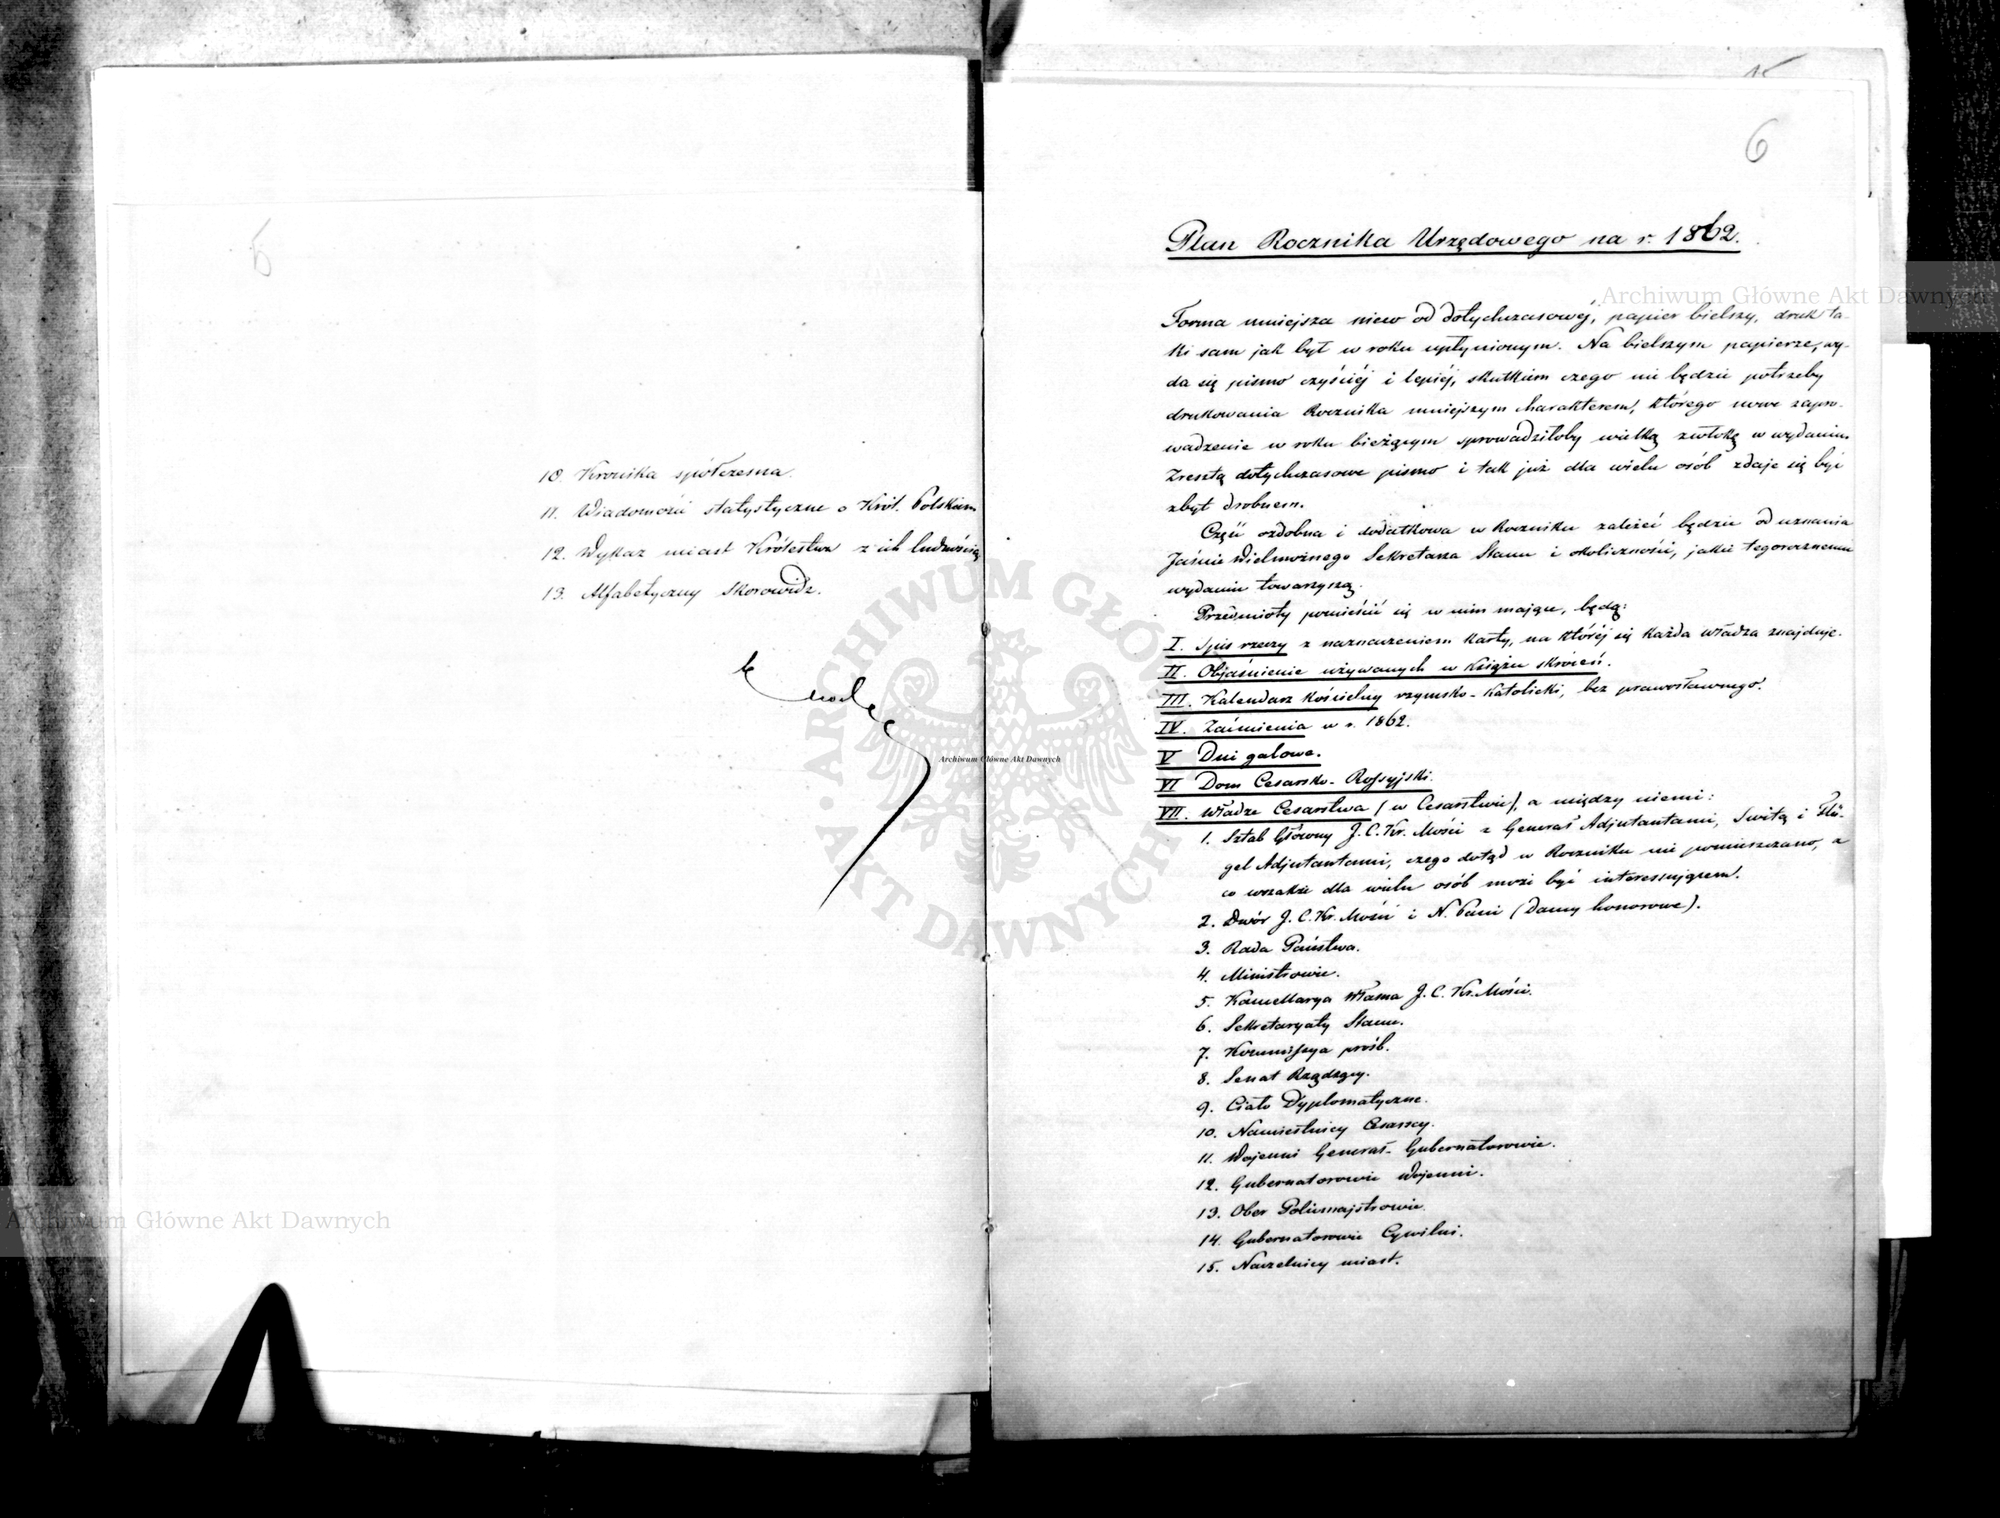 5
10. Kronika spółczesna.
11. Wiadomości statystyczne o Król. Polskiem
12. Wykaz miast Królestwa z ich ludnością
13. Alfabetyczny skorowidz.
6
Plan Rocznika Urzędowego na r. 1862.
Forma mniejsza nieco od dotychczasowéj, papier bielszy, druk ta-
ki sam jak był w roku upłynionym. Na bielszym papierze, wy-
da się pismo czyściéj i lepiéj, skutkiem czego nie będzie potrzeby
drukowania Rocznika mniejszym charakterem, którego nowe zapro-
wadzenie w roku bieżącym sprowadziłoby wielką zwłokę w wydaniu.
Zresztą dotychczasowe pismo i tak już dla wielu osób zdaje się być
zbyt drobnem.
Część ozdobna i dodatkowa w Roczniku zależeć będzie od uznania
Jaśnie Wielmożnego Sekretarza Stanu i okoliczności, jakie tegorocznemu
wydaniu towarzyszą.
Przedmioty pomieścić się w nim mające, będą:
I. Spis rzeczy z naznaczeniem karty, na któréj się każda władza znajduje.
II. Objaśnienie używanych w książce skróceń.
III. Kalendarz kościelny rzymsko-katolicki, bez prawosławnego.
IV. Zaćmienia w r. 1862.
V Dni galowe.
VI Dom Cesarsko-Rossyjski.
VII. Władze Cesarstwa (w Cesarstwie), a między niemi:
1. Sztab Główny J. C. Kr. Mości z Generał Adjutantami, Switą i Flü-
gel Adjutantami, czego dotąd w Roczniku nie pomieszczano, a
co wszakże dla wielu osób może być interessującem.
2. Dwór J. C. Kr. Mości i N. Pani (Damy honorowe).
3. Rada Państwa.
4. Ministrowie.
5. Kancellarya Własna J. C. Kr. Mości.
6. Sekretaryaty Stanu.
7. Kommissya próśb.
8. Senat Rządzący.
9. Ciało Dyplomatyczne.
10. Namiestnicy Cesarscy.
11. Wojenni Generał-Gubernatorowie.
12. Gubernatorowie Wojenni.
13. Ober Policmajstrowie.
14. Gubernatorowie Cywilni.
15. Naczelnicy miast.
Archiwum Główne Akt Dawnych
Archiwum Główne Akt Dawnych
Archiwum Główne Akt Dawnych
ARCHIWUM GŁÓWNE AKT DAWNYCH